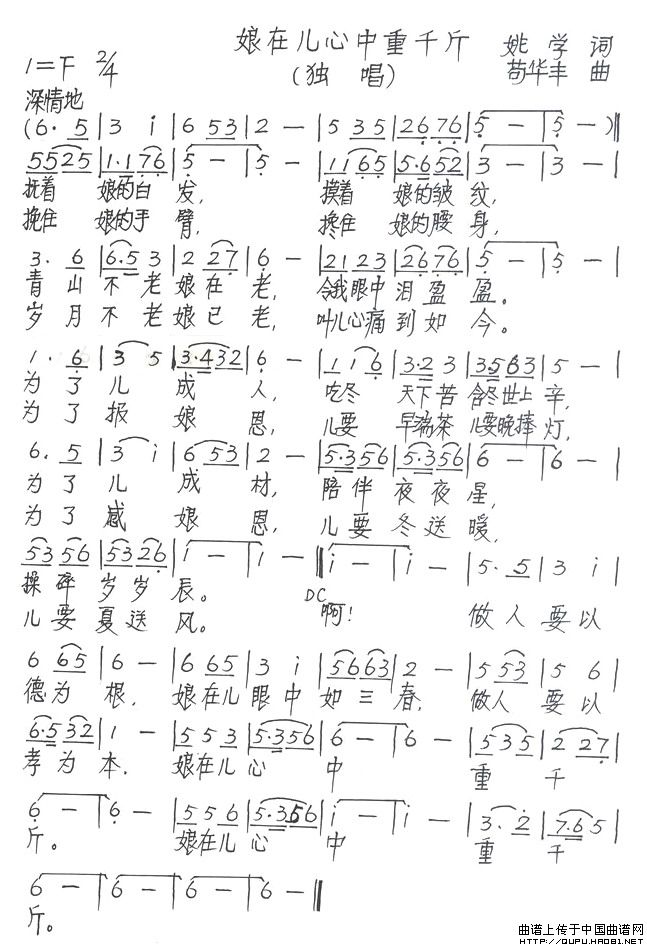 娘在儿心中重千斤 姚学词
1=F 2/4 (独唱) 苟华丰曲
深情地
(6. 5 | 3 i | 6 53 | 2 — | 5 35 | 26 76 | 5 — | 5 —)‖
5525 | 1·176 | 5 — | 5 — | 1165 | 5·652 | 3 — | 3 — |
抚着 娘的白发, 摸着 娘的皱纹,
挽住 娘的手臂, 搀住 娘的腰身,
3. 6 | 6·5 3 | 2 27 | 6 — | 21 23 | 26 76 | 5 — | 5 — |
青山不老娘在老, 令我眼中泪盈盈。
岁月不老娘已老, 叫儿心痛到如今。
1. 6 | 3 5 | 3·432 | 6 — | 1 1 6 | 3·2 3 | 3563 | 5 — |
为了儿成人, 吃冬 天下苦 含冬世上辛,
为了报娘恩, 儿要 早端茶 儿要晚捧灯,
6. 5 | 3 i | 6 53 | 2 — | 5·356 | 5·356 | 6 — | 6 — |
为了儿成材, 陪伴夜夜星,
为了感娘恩, 儿要冬送暖,
53 56 | 53 26 | i — | i — ‖ i — | i — | 5. 5 | 3 i |
操碎岁岁辰。 DC 啊! 做人要以
儿要夏送风。
6 65 | 6 — | 6 65 | 3 i | 5663 | 2 — | 5 53 | 5 6 |
德为根, 娘在儿眼中如三春, 做人要以
6·532 | 1 — | 5 5 3 | 5·356 | 6 — | 6 — | 535 | 2 27 |
孝为本. 娘在儿心中重千
6 — | 6 — | 5 5 6 | 5·356 | i — | i — | 3. 2 | 7·6 5 |
斤。 娘在儿心中重千
6 — | 6 — | 6 — | 6 — ‖
斤。
曲谱上传于中国曲谱网
HTTP://QUPU.HAO81.NET